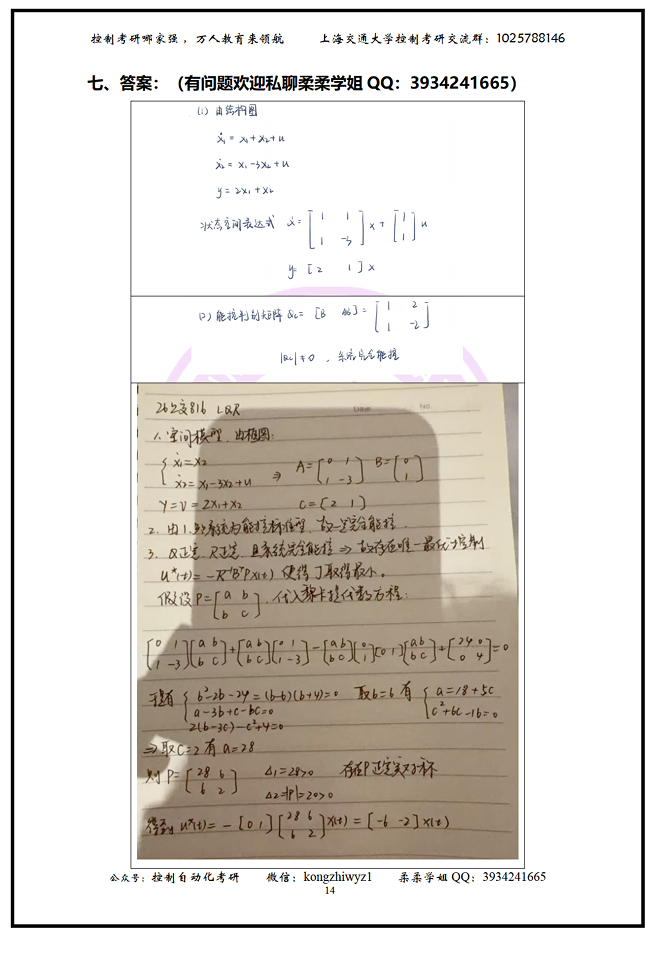 控制考研哪家强，万人教育来领航 上海交通大学控制考研交流群：1025788146
七、答案：（有问题欢迎私聊柔柔学姐 QQ：3934241665）
(1) 由结构图
ẋ₁ = x₁+x₂+u
ẋ₂ = x₁-3x₂+u
y = 2x₁+x₂
状态空间表达式 ẋ = [1 1; 1 -3] x + [1; 1] u
y = [2 1] x
(2) 能控判别矩阵 Qc = [B AB] = [1 2; 1 -2]
|Qc| ≠ 0，系统完全能控
26上交816 LQR
Date No
1. 空间模型，由框图：
{ẋ₁=x₂
ẋ₂=x₁-3x₂+u ⇒ A=[0 1; 1 -3] B=[0; 1]
Y=V=2x₁+x₂ C=[2 1]
2. 由1.知系统为能控标准型，故一定完全能控.
3. Q正定，R正定，且系统完全能控 ⇒ 故存在唯一最优控制
u*(t) = -R⁻¹BᵀPx(t) 使得J取得最小。
假设P=[a b; b c]，代入黎卡提代数方程：
[0 1; 1 -3][a b; b c]+[a b; b c][0 1; 1 -3]-[a b; b c][0; 1][0 1][a b; b c]+[24 0; 0 4]=0
于是有 {b²-2b-24=(b-6)(b+4)=0 取b=6 有 {a=18+5c
a-3b+c-bc=0 c²+6c-16=0
2(b-3c)-c²+4=0
⇒取c=2 有a=28
则P=[28 6; 6 2] Δ₁=28>0 存在P正定实对称
Δ₂=|P|=20>0
得到 u*(t) = -[0 1][28 6; 6 2]x(t) = [-6 -2]x(t)
公众号：控制自动化考研 微信：kongzhiwyz1 柔柔学姐 QQ：3934241665
14